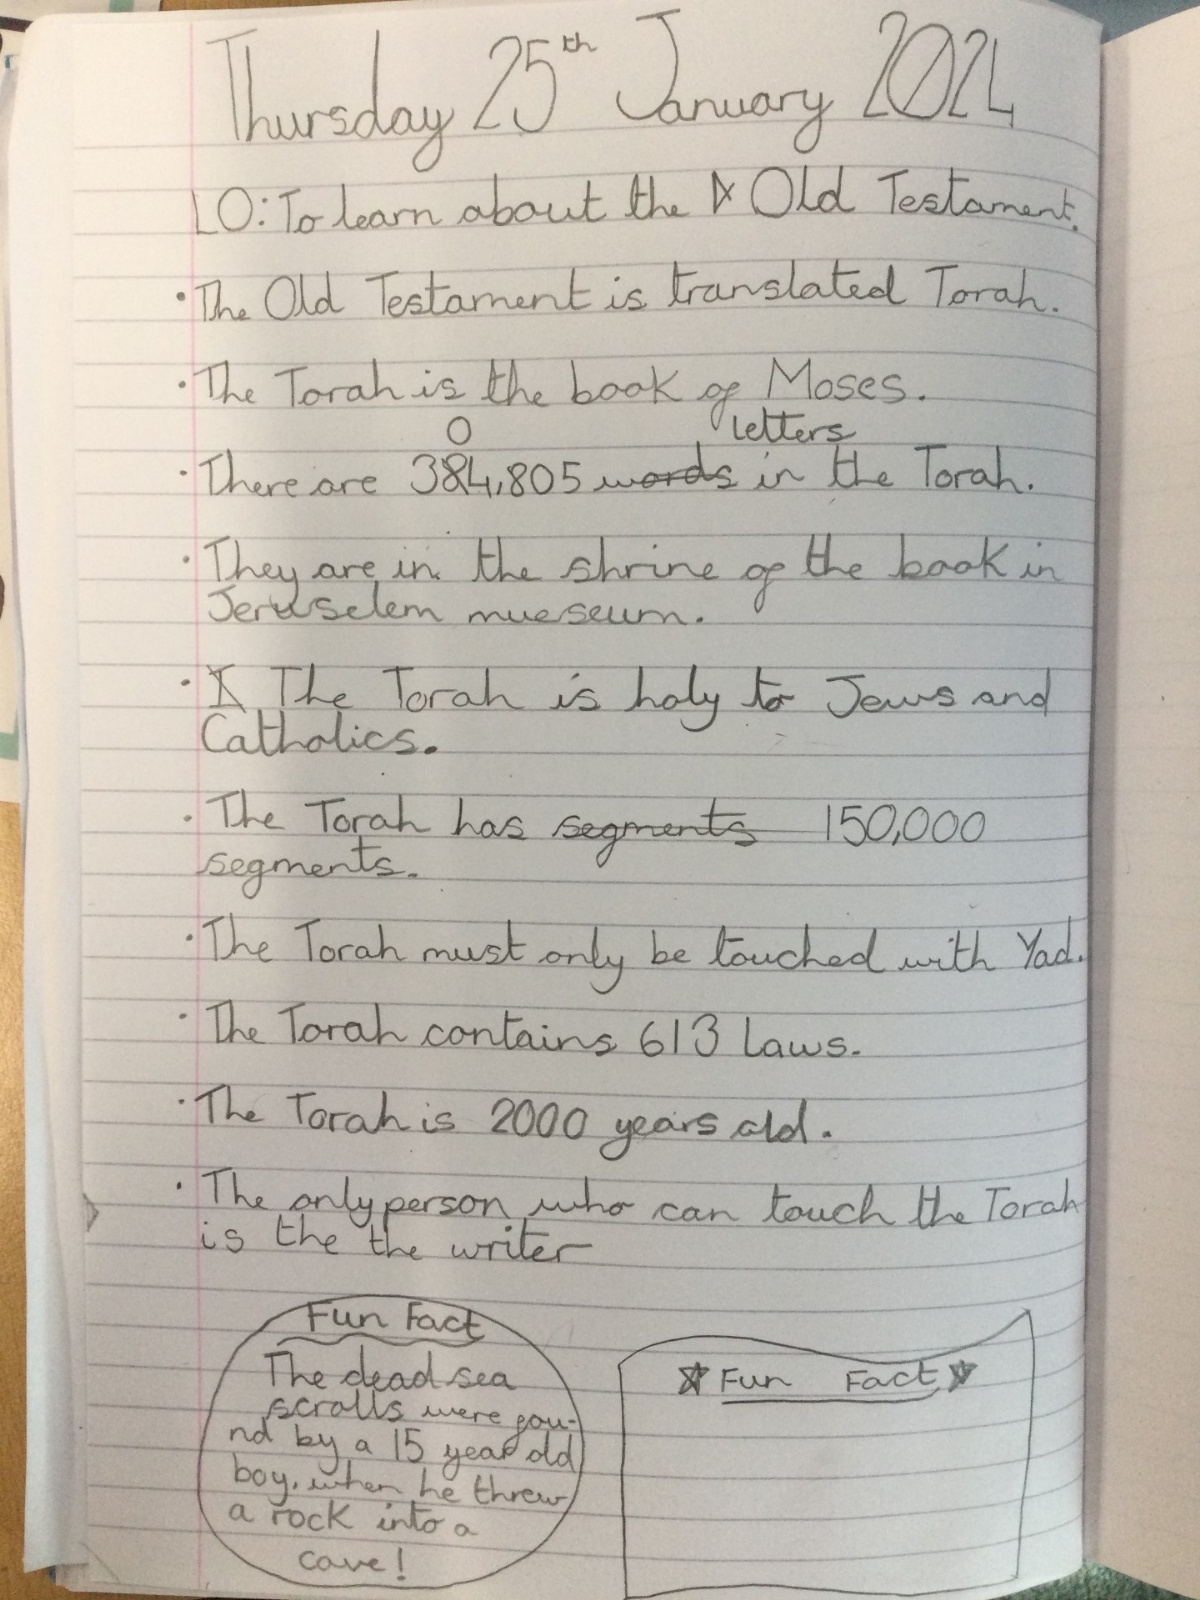 Thursday 25th January 2024
LO: To learn about the Old Testament.
• The Old Testament is translated Torah.
• The Torah is the book of Moses.
0 letters
• There are 384,805 words in the Torah.
• They are in the shrine of the book in
Jeruselem mueseum.
• The Torah is holy to Jews and
Catholics.
• The Torah has segments 150,000
segments.
• The Torah must only be touched with Yad.
• The Torah contains 613 laws.
• The Torah is 2000 years old.
• The only person who can touch the Torah
is the the writer
Fun Fact
The dead sea
scrolls were fou-
nd by a 15 year old
boy, when he threw
a rock into a
cave!
Fun Fact